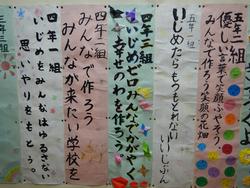 五年三組
優しい言葉で笑顔ふやそう
みんなで作ろう笑顔の花畑
いじめたら
もどれない
いいじぶん
四年三組
いじめゼロみんなでかがやく
幸せのわを作ろう
四年二組
みんなで作ろう
みんなが来たい学校を
四年一組
いじめをみんなはゆるさない。
思いやりをもとう。
三年三組